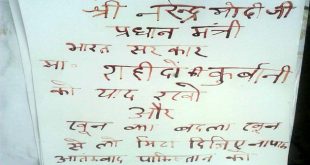 श्री नरेन्द्र मोदी जी
प्रधान मंत्री
भारत सरकार
मा. शहीदों कि कुर्बानी
को याद रखो
और
खून का बदला खून
से लो मिटा दिजिए नापाक
आतंकवाद पाकिस्तान को